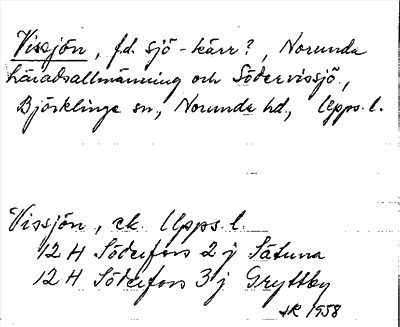 Vissjön, f.d. sjö-kärr?, Norunda
häradsallmänning och Södervissjö,
Björklinge sn, Norunda hd, Upps. l.
Vissjön, ek. Upps. l.
12 H Söderfors 2 j Sätuna
12 H Söderfors 3 j Gryttby
1958